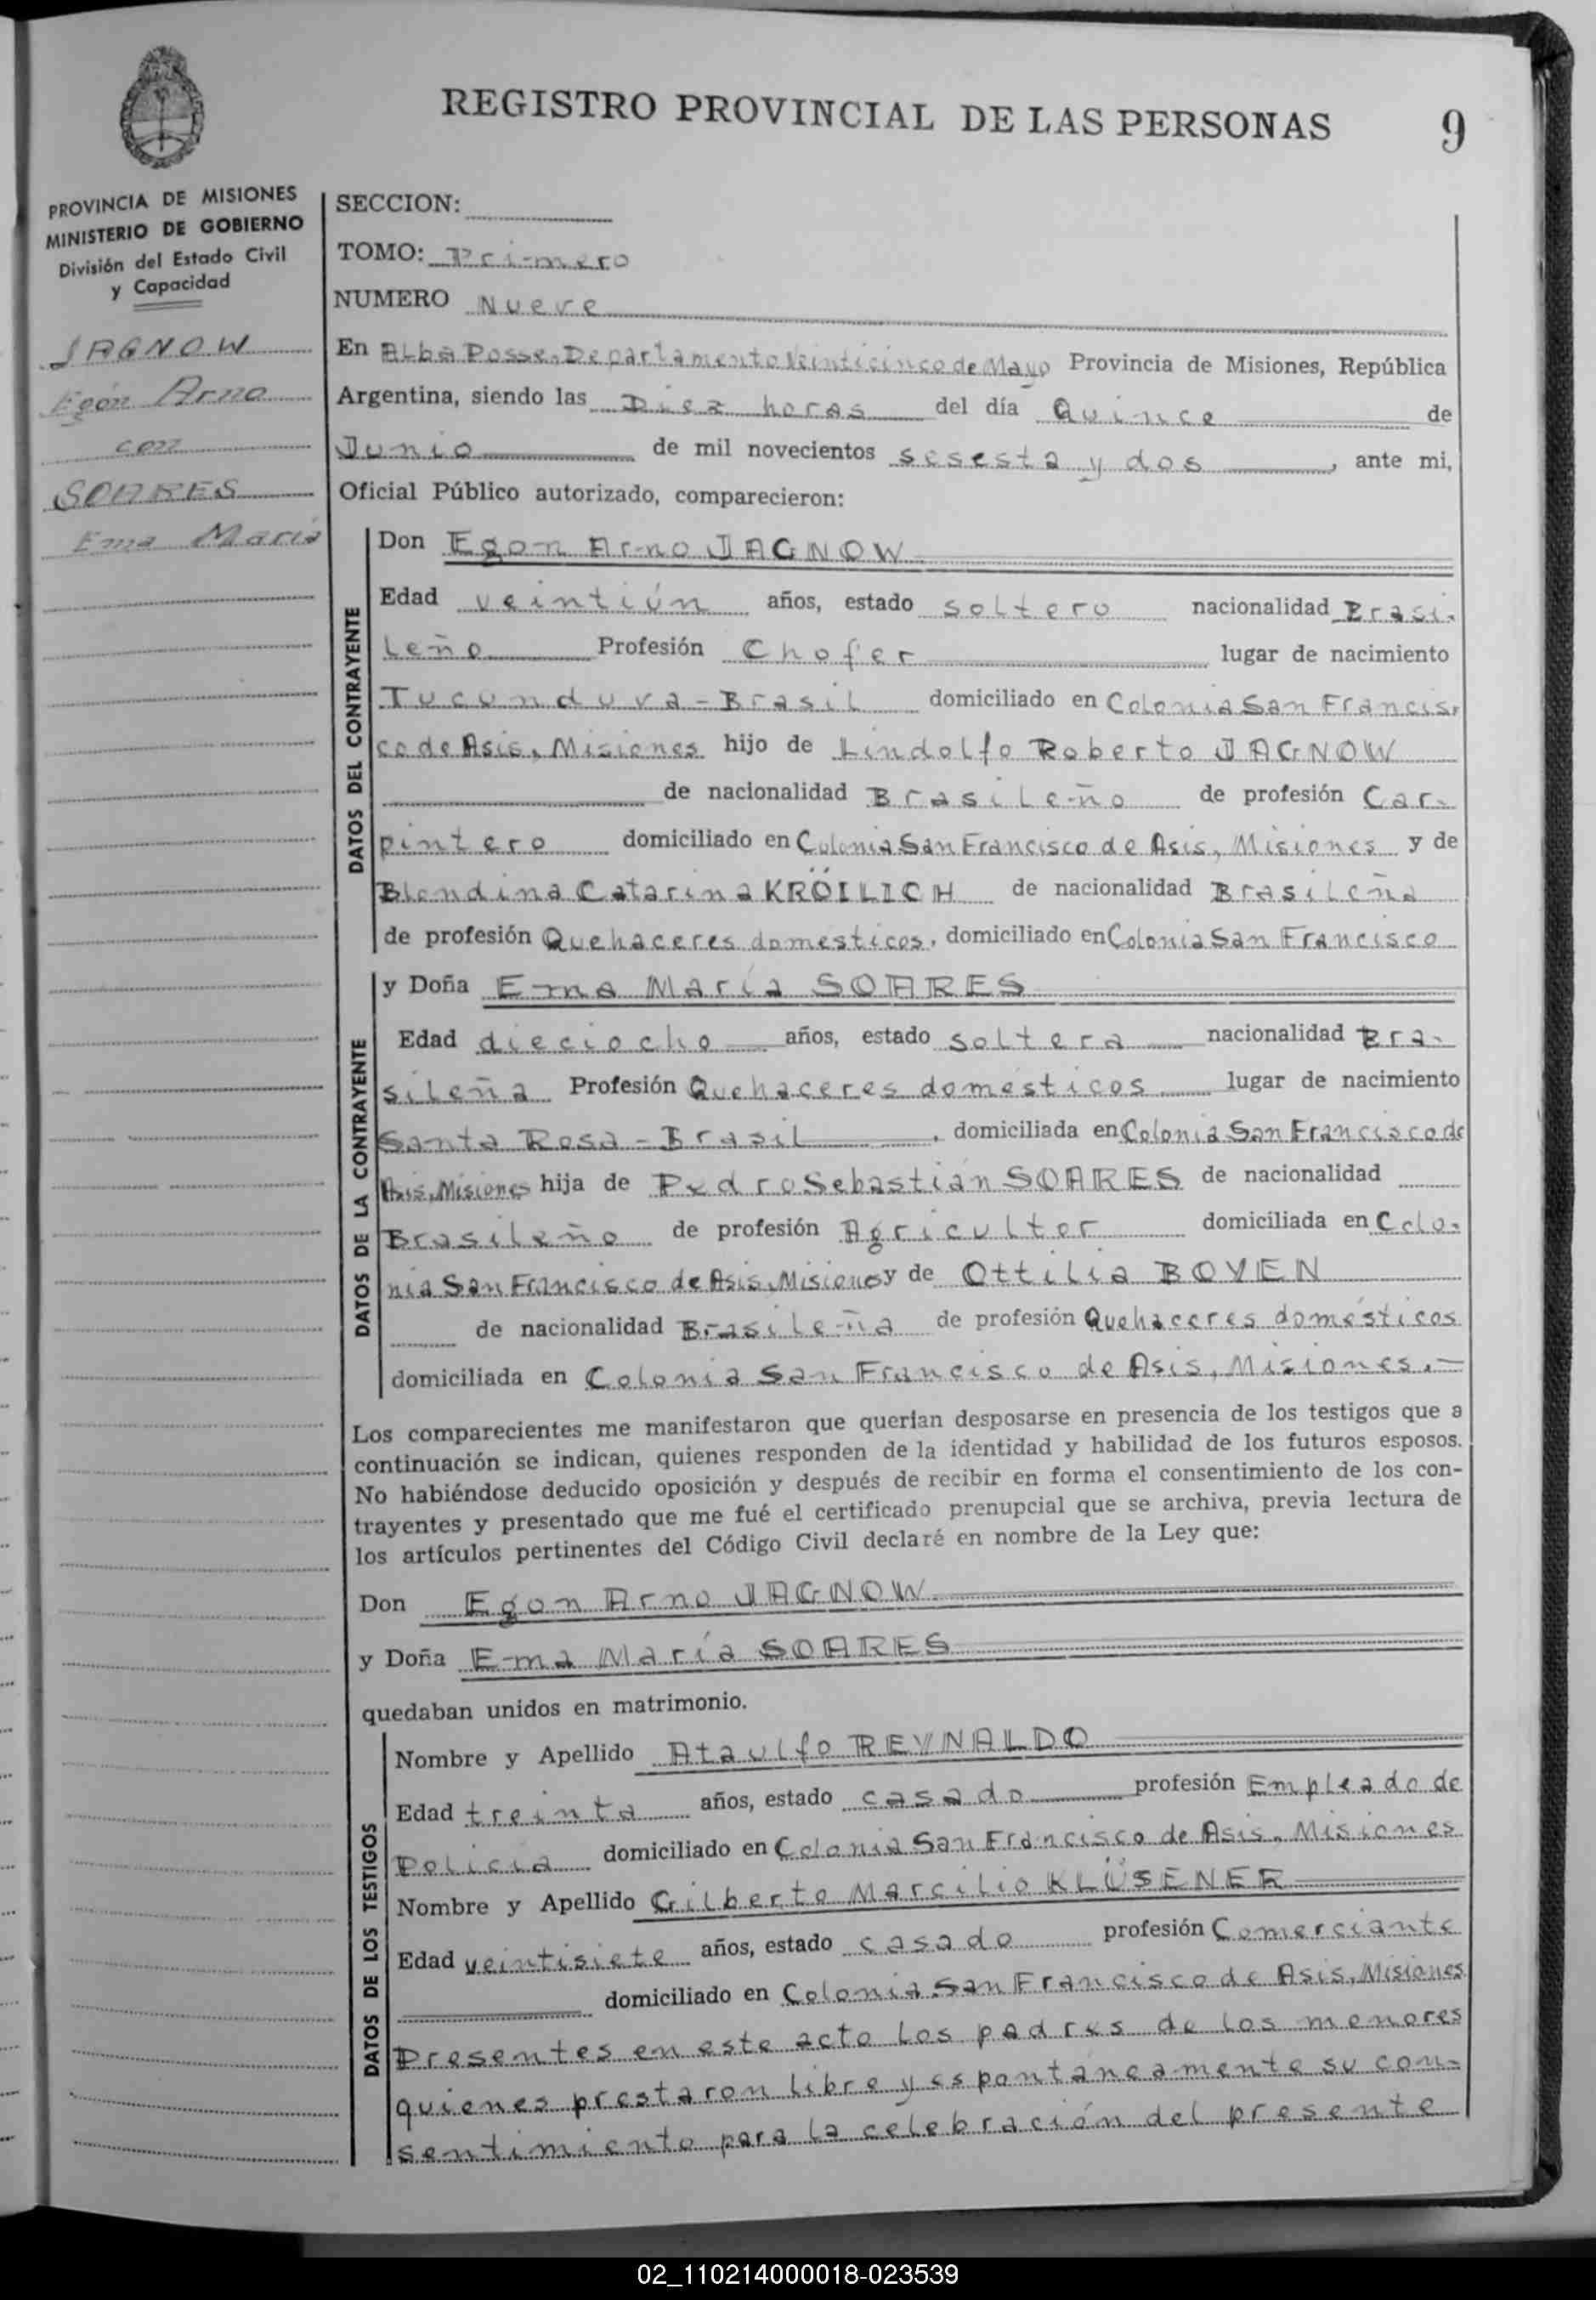 REGISTRO PROVINCIAL DE LAS PERSONAS
9
PROVINCIA DE MISIONES
MINISTERIO DE GOBIERNO
División del Estado Civil
y Capacidad
JAGNOW
Egón Arno
con
SOARES
Ema María
SECCION:
TOMO: Primero
NUMERO Nueve
En Alba Posse, Departamento Veinticinco de Mayo Provincia de Misiones, República
Argentina, siendo las Diez horas del día Quince de
Junio de mil novecientos sesesta y dos, ante mi,
Oficial Público autorizado, comparecieron:
DATOS DEL CONTRAYENTE
Don Egon Arno JAGNOW
Edad veintiún años, estado soltero nacionalidad Brasi-
leño Profesión Chofer lugar de nacimiento
Tucunduva - Brasil domiciliado en Colonia San Francis-
co de Asis, Misiones hijo de Lindolfo Roberto JAGNOW
de nacionalidad Brasileño de profesión Car-
pintero domiciliado en Colonia San Francisco de Asis, Misiones y de
Blondina Catarina KRÖILICH de nacionalidad Brasileña
de profesión Quehaceres domesticos, domiciliado en Colonia San Francisco
DATOS DE LA CONTRAYENTE
y Doña Ema María SOARES
Edad dieciocho años, estado soltera nacionalidad Bra-
sileña Profesión Quehaceres domésticos lugar de nacimiento
Santa Rosa - Brasil, domiciliada en Colonia San Francisco de
Asis, Misiones hija de Pedro Sebastián SOARES de nacionalidad
Brasileño de profesión Agricultor domiciliada en Colo-
nia San Francisco de Asis, Misiones y de Ottilia BOVEN
de nacionalidad Brasileña de profesión Quehaceres domésticos
domiciliada en Colonia San Francisco de Asis, Misiones.-
Los comparecientes me manifestaron que querían desposarse en presencia de los testigos que a
continuación se indican, quienes responden de la identidad y habilidad de los futuros esposos.
No habiéndose deducido oposición y después de recibir en forma el consentimiento de los con-
trayentes y presentado que me fué el certificado prenupcial que se archiva, previa lectura de
los artículos pertinentes del Código Civil declaré en nombre de la Ley que:
Don Egon Arno JAGNOW
y Doña Ema María SOARES
quedaban unidos en matrimonio.
DATOS DE LOS TESTIGOS
Nombre y Apellido Ataulfo REYNALDO
Edad treinta años, estado casado profesión Empleado de
Policia domiciliado en Colonia San Francisco de Asis, Misiones
Nombre y Apellido Gilberto Marcilio KLÜSENER
Edad veintisiete años, estado casado profesión Comerciante
domiciliado en Colonia San Francisco de Asis, Misiones
Presentes en este acto los padres de los menores
quienes prestaron libre y espontáneamente su con-
sentimiento para la celebración del presente
02_110214000018-023539